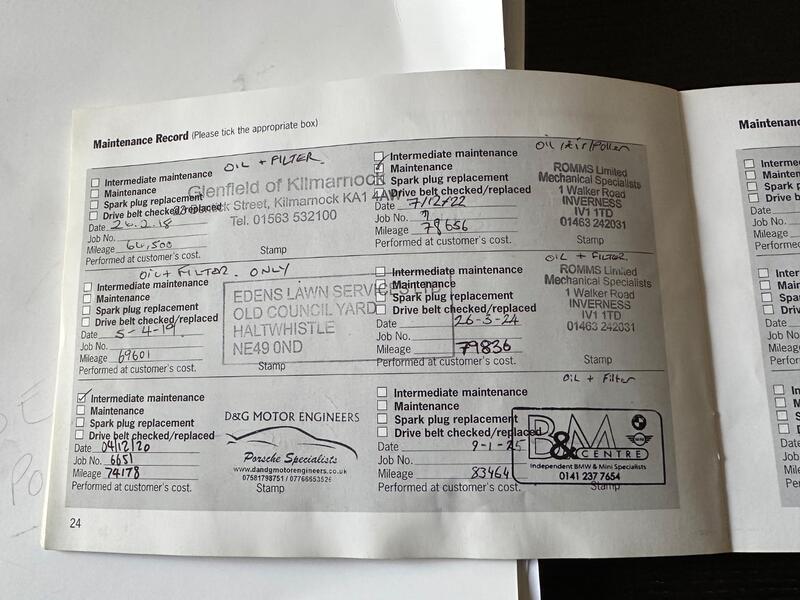 Maintenance Record (Please tick the appropriate box)
OIL + FILTER
Intermediate maintenance
Maintenance
Spark plug replacement
Drive belt checked/replaced
Date 26.2.18
Job No.
Mileage 66,500
Performed at customer's cost.
Glenfield of Kilmarnock
Street, Kilmarnock KA1 4AW
Tel. 01563 532100
Stamp
Oil /Air/Pollen
Intermediate maintenance
Maintenance
Spark plug replacement
Drive belt checked/replaced
Date 7/12/22
Job No.
Mileage 79656
Performed at customer's cost.
ROMMS Limited
Mechanical Specialists
1 Walker Road
INVERNESS
IV1 1TD
01463 242031
Stamp
OIL + FILTER. ONLY
Intermediate maintenance
Maintenance
Spark plug replacement
Drive belt checked/replaced
Date 5-4-19
Job No.
Mileage 69601
Performed at customer's cost.
EDENS LAWN SERVICES
OLD COUNCIL YARD
HALTWHISTLE
NE49 0ND
Stamp
OIL + FILTER.
Intermediate maintenance
Maintenance
Spark plug replacement
Drive belt checked/replaced
Date 26-3-24
Job No.
Mileage 79836
Performed at customer's cost.
ROMMS Limited
Mechanical Specialists
1 Walker Road
INVERNESS
IV1 1TD
01463 242031
Stamp
Intermediate maintenance
Maintenance
Spark plug replacement
Drive belt checked/replaced
Date 04/12/20
Job No. 6651
Mileage 74178
Performed at customer's cost.
D&G MOTOR ENGINEERS
Porsche Specialists
www.dandgmotorengineers.co.uk
07581798751 / 07766653526
Stamp
Oil + Filter
Intermediate maintenance
Maintenance
Spark plug replacement
Drive belt checked/replaced
Date 9-1-25
Job No.
Mileage 83464
Performed at customer's cost.
B&M
CENTRE
Independent BMW & Mini Specialists
0141 237 7654
Stamp
24
Maintenanc